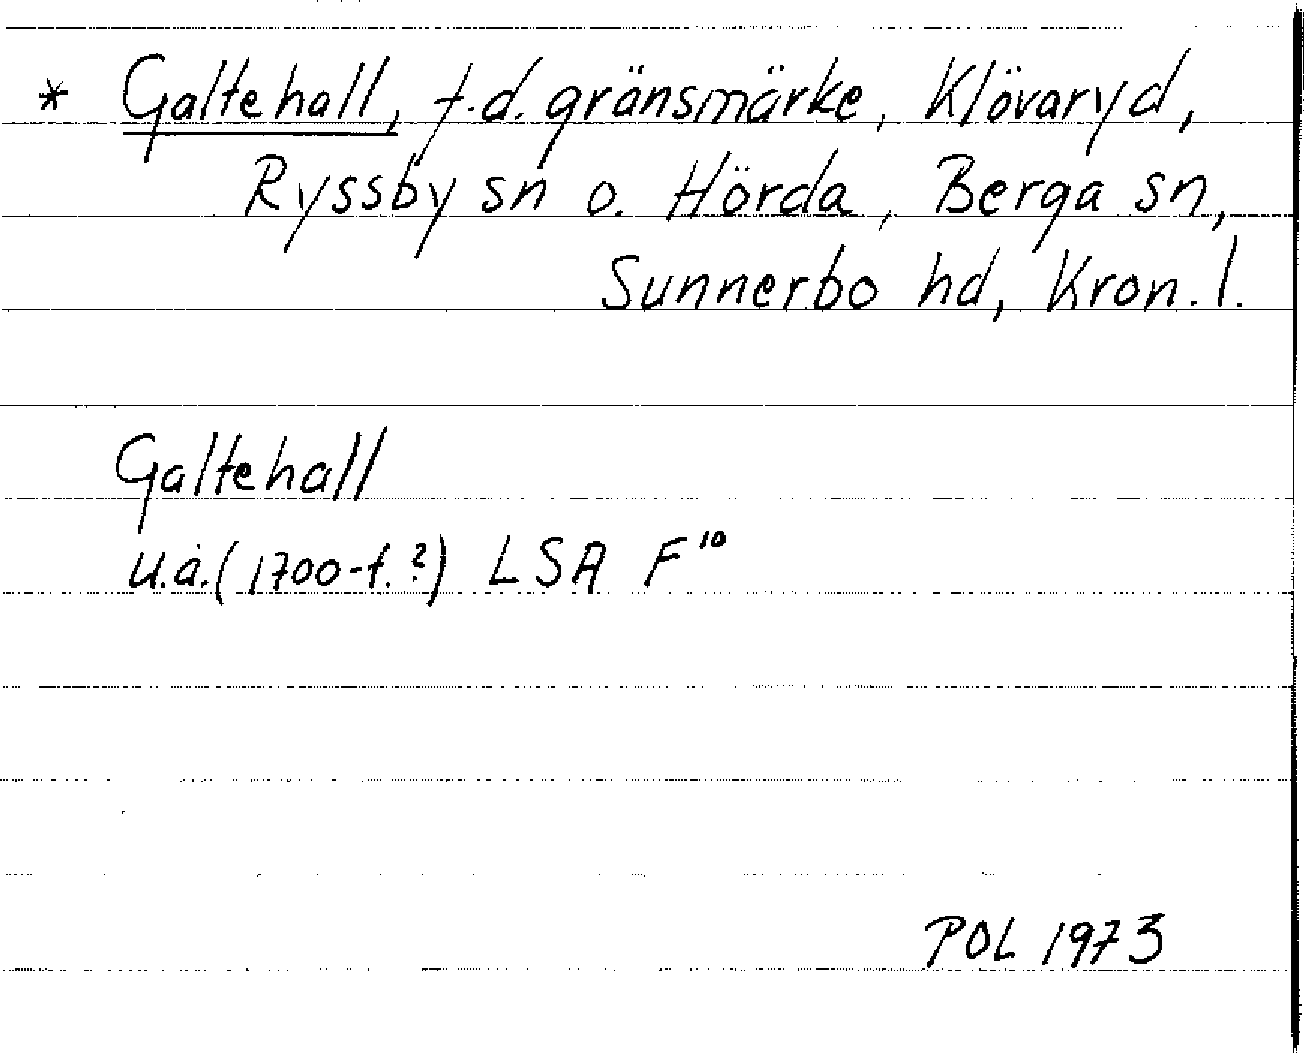 * Galtehall, f.d. gränsmärke, Klövaryd,
Ryssby sn o. Hörda, Berga sn,
Sunnerbo hd, Kron. l.
Galtehall
u.å. (1700-t.?) LSA F¹⁰
POL 1973